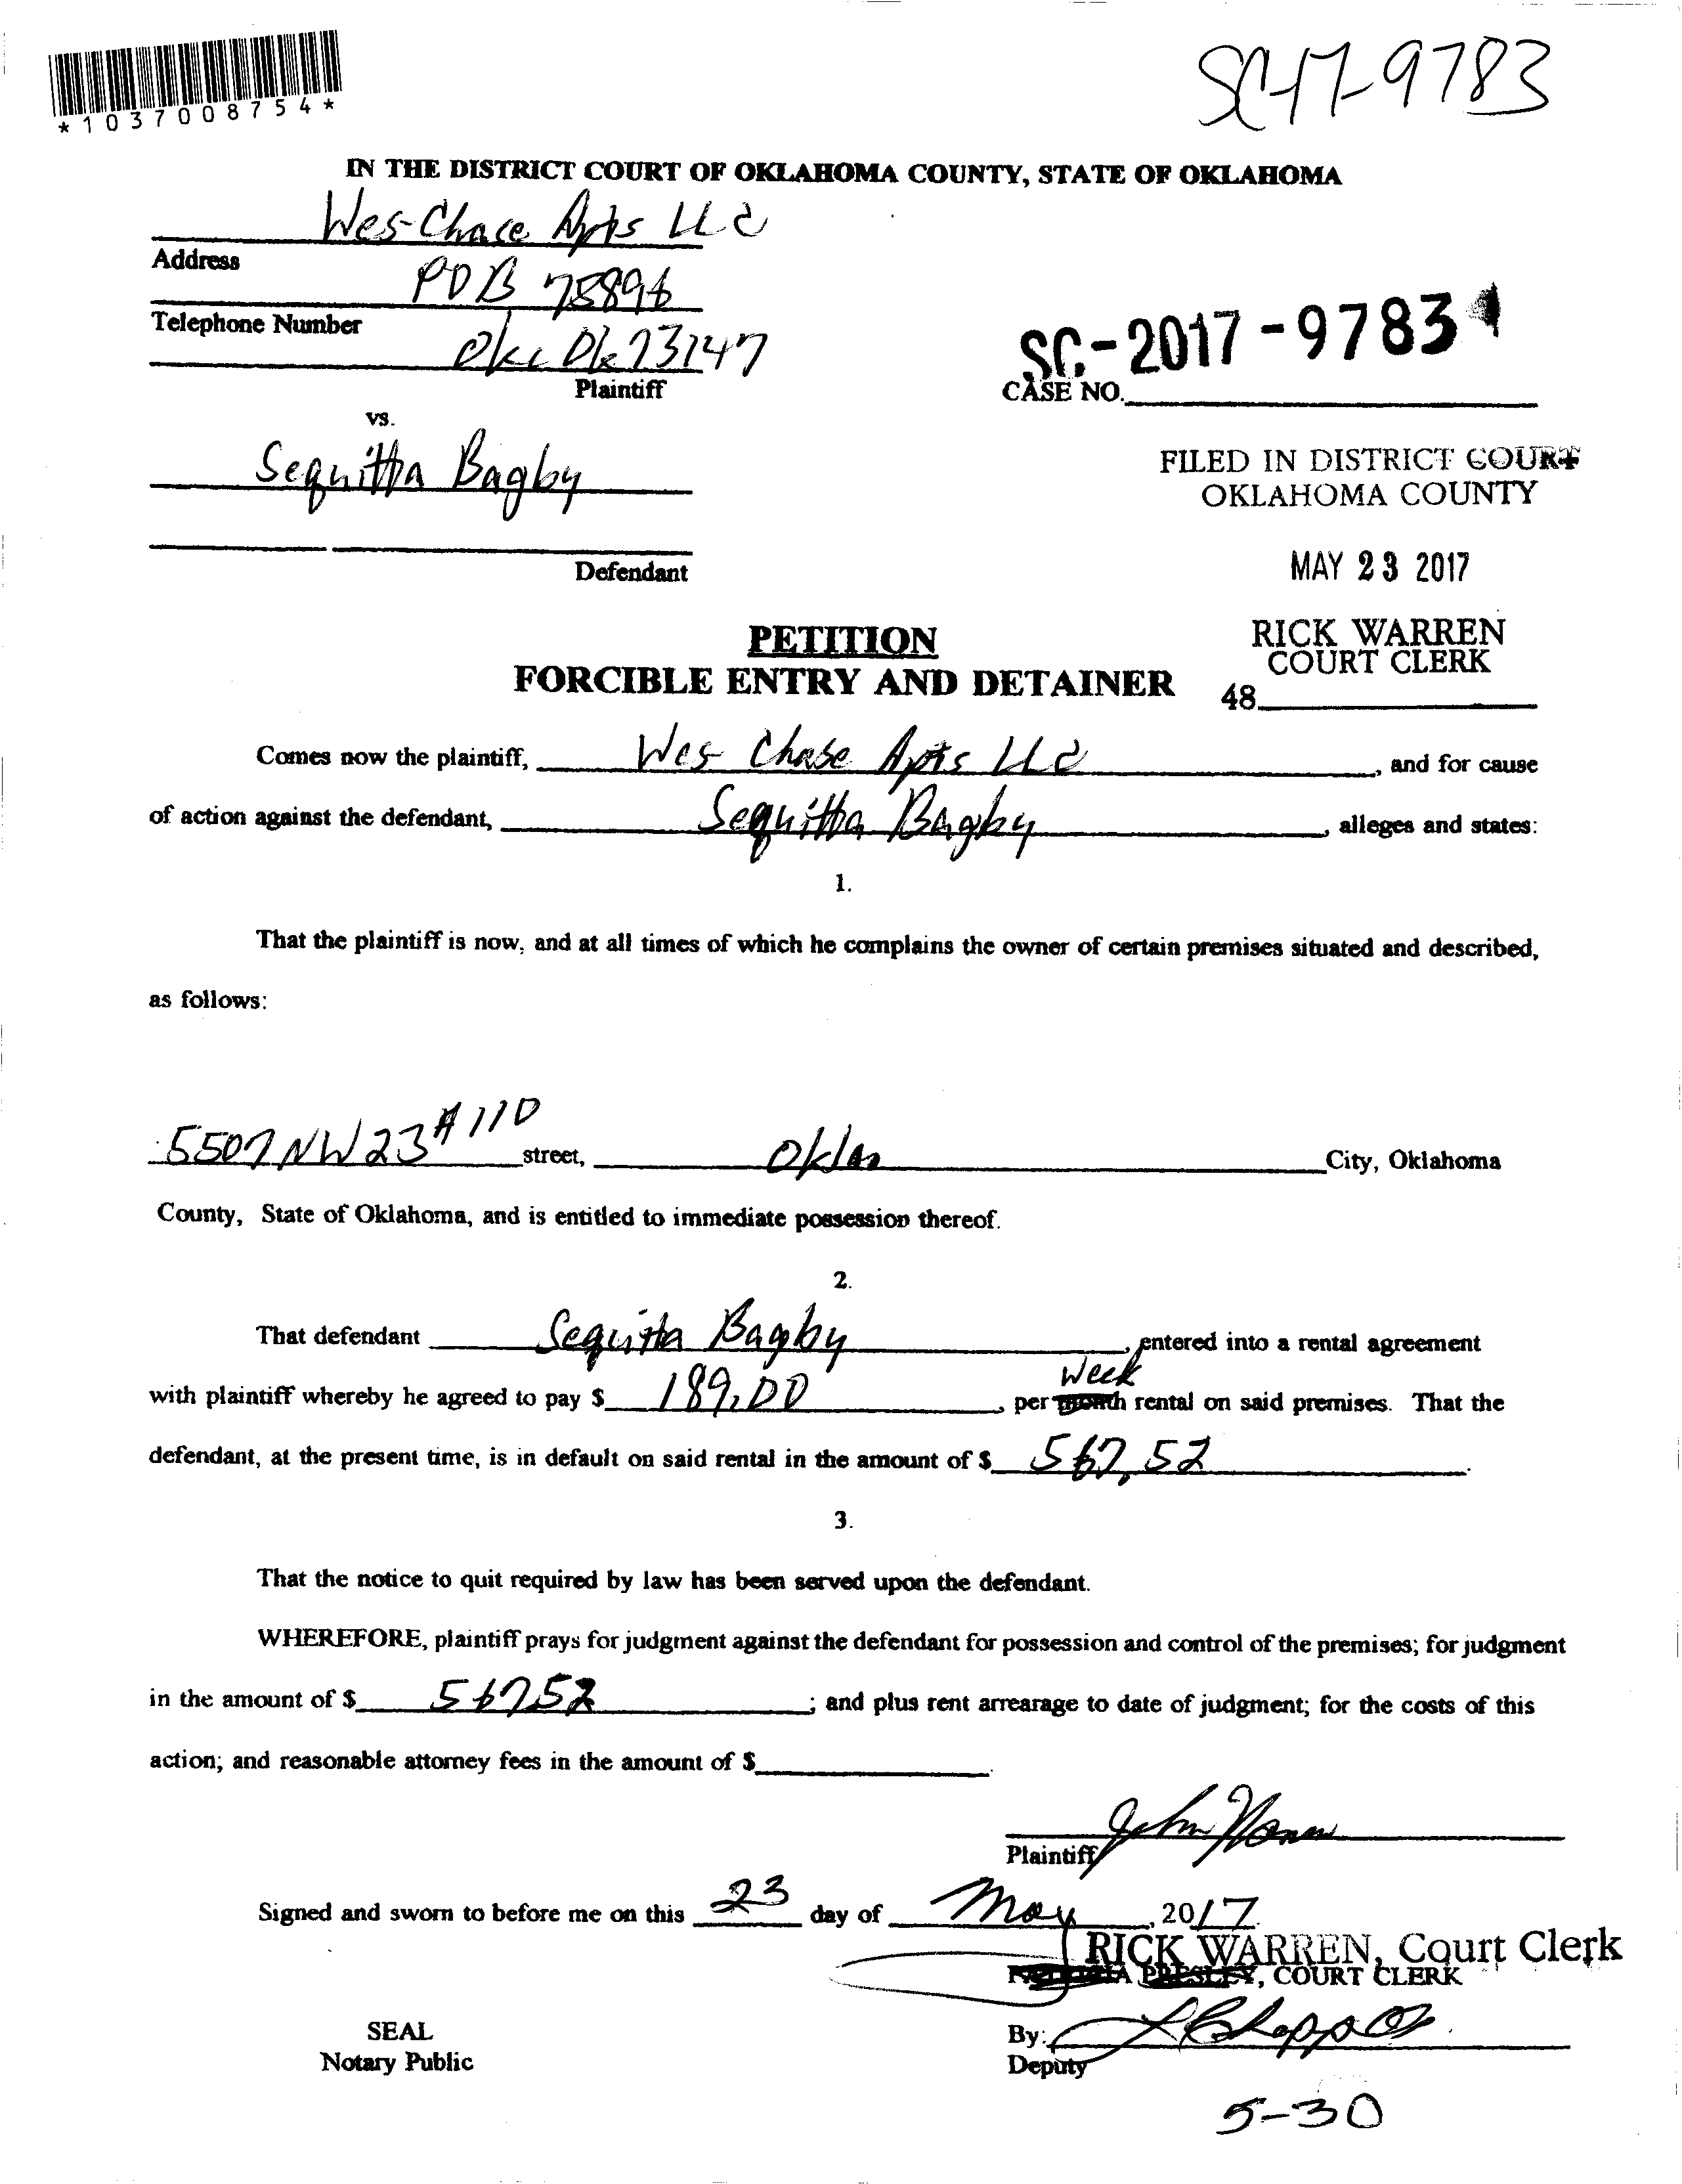 SC-17-9783
*1037008754*
IN THE DISTRICT COURT OF OKLAHOMA COUNTY, STATE OF OKLAHOMA
Wes-Chace Apts LLC
Address
POB 75896
Telephone Number
Okc Ok 73147
Plaintiff
SC-2017-9783
CASE NO.
vs.
Sequitta Bagby
Defendant
FILED IN DISTRICT COURT
OKLAHOMA COUNTY
MAY 23 2017
RICK WARREN
COURT CLERK
48
PETITION
FORCIBLE ENTRY AND DETAINER
Comes now the plaintiff, Wes-Chase Apts LLC, and for cause
of action against the defendant, Sequitta Bagby, alleges and states:
1.
That the plaintiff is now, and at all times of which he complains the owner of certain premises situated and described,
as follows:
5507 NW 23 #110 street, Okla City, Oklahoma
County, State of Oklahoma, and is entitled to immediate possession thereof.
2.
That defendant Sequitta Bagby, entered into a rental agreement
week
with plaintiff whereby he agreed to pay $ 189.00, per month rental on said premises. That the
defendant, at the present time, is in default on said rental in the amount of $ 567.52.
3.
That the notice to quit required by law has been served upon the defendant.
WHEREFORE, plaintiff prays for judgment against the defendant for possession and control of the premises; for judgment
in the amount of $ 567.52; and plus rent arrearage to date of judgment; for the costs of this
action; and reasonable attorney fees in the amount of $.
John
Plaintiff
Signed and sworn to before me on this 23 day of May, 2017
RICK WARREN, Court Clerk
PRESLEY, COURT CLERK
SEAL
Notary Public
By:
Deputy
5-30